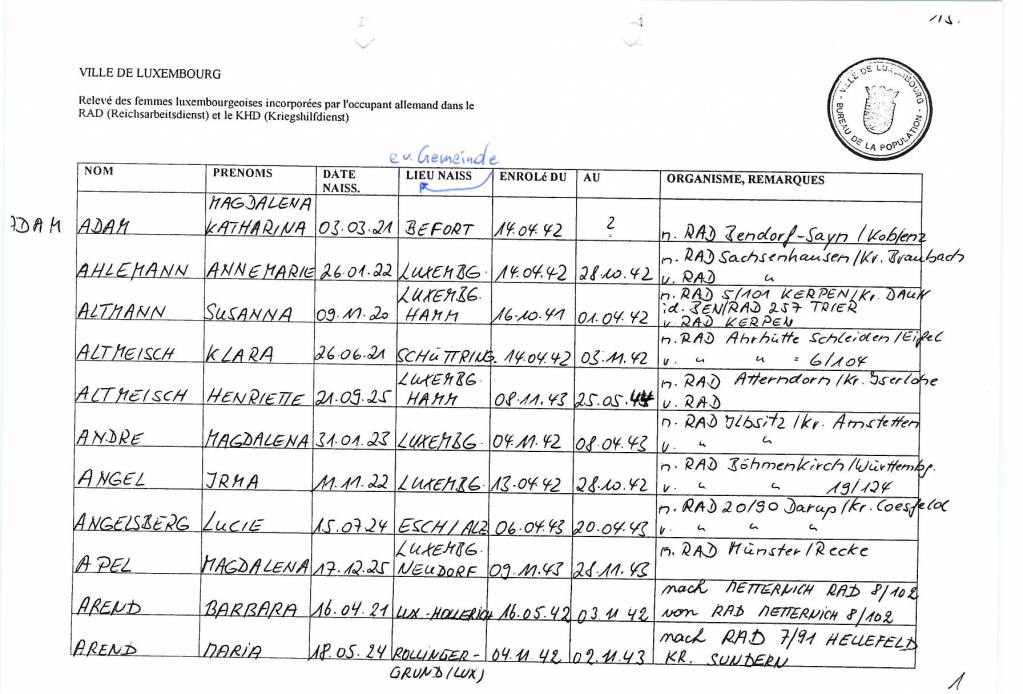 115.
VILLE DE LUXEMBOURG
Relevé des femmes luxembourgeoises incorporées par l'occupant allemand dans le
RAD (Reichsarbeitsdienst) et le KHD (Kriegshilfdienst)
VILLE DE LUXEMBOURG
BUREAU DE LA POPULATION
ev. Gemeinde
NOM PRENOMS DATE NAISS. LIEU NAISS ENROLé DU AU ORGANISME, REMARQUES
MAGDALENA
ADAM ADAM KATHARINA 03.03.21 BEFORT 14.04.42 ? n. RAD Bendorf-Sayn / Koblenz
n. RAD Sachsenhausen / Kr. Braubach
AHLEMANN ANNEMARIE 26.01.22 LUXEMBG. 14.04.42 28.10.42 v. RAD "
LUXEMBG. n. RAD 5/101 KERPEN / Kr. DAUN
ALTMANN SUSANNA 09.11.20 HAMM 16.10.41 01.04.42 id. BEN/RAD 257 TRIER
v RAD KERPEN
n. RAD Ahrhütte Schleiden / Eifel
ALTMEISCH KLARA 26.06.21 SCHÜTTRING. 14.04.42 03.11.42 v. " " = 6/104
LUXEMBG. n. RAD Atterndorn / Kr. Iserlohe
ALTMEISCH HENRIETTE 21.09.25 HAMM 08.11.43 25.05.44 v. RAD
n. RAD Ilbsitz / Kr. Amstetten
ANDRE MAGDALENA 31.01.23 LUXEMBG. 04.11.42 08.04.43 v. " "
n. RAD Böhmenkirch / Württembg.
ANGEL IRMA 11.11.22 LUXEMBG. 13.04.42 28.10.42 v. " " 19/124
n. RAD 20/90 Darup / Kr. Coesfeld
ANGELSBERG LUCIE 15.07.24 ESCH / ALZ 06.04.43 20.04.43 v. " " "
LUXEMBG. n. RAD Münster / Recke
APEL MAGDALENA 17.12.25 NEUDORF 09.11.43 28.11.43
nach METTERNICH RAD 8/102
AREND BARBARA 16.04.21 LUX-HOLLERICH 16.05.42 03 11 42 von RAD METTERNICH 8/102
nach RAD 7/91 HELLEFELD
AREND MARIA 18.05.24 ROLLINGER- 04.11 42 02.11.43 KR. SUNDERN
GRUND (LUX)
1